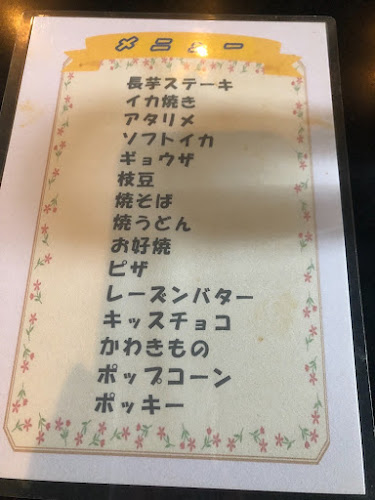 メニュー
長芋ステーキ
イカ焼き
アタリメ
ソフトイカ
ギョウザ
枝豆
焼そば
焼うどん
お好焼
ピザ
レーズンバター
キッスチョコ
かわきもの
ポップコーン
ポッキー